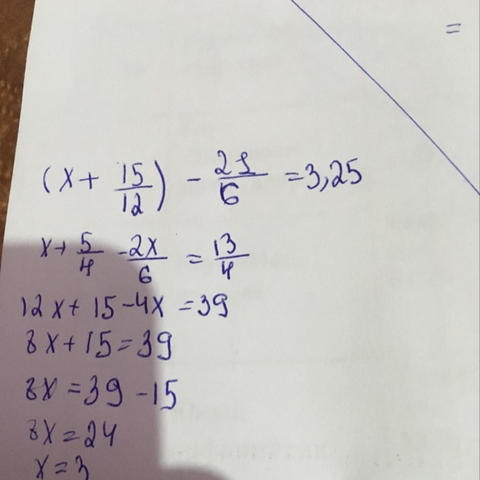 =
(x + 15/12) - 21/6 = 3,25
x + 5/4 - 2x/6 = 13/4
12x + 15 - 4x = 39
8x + 15 = 39
8x = 39 - 15
8x = 24
x = 3